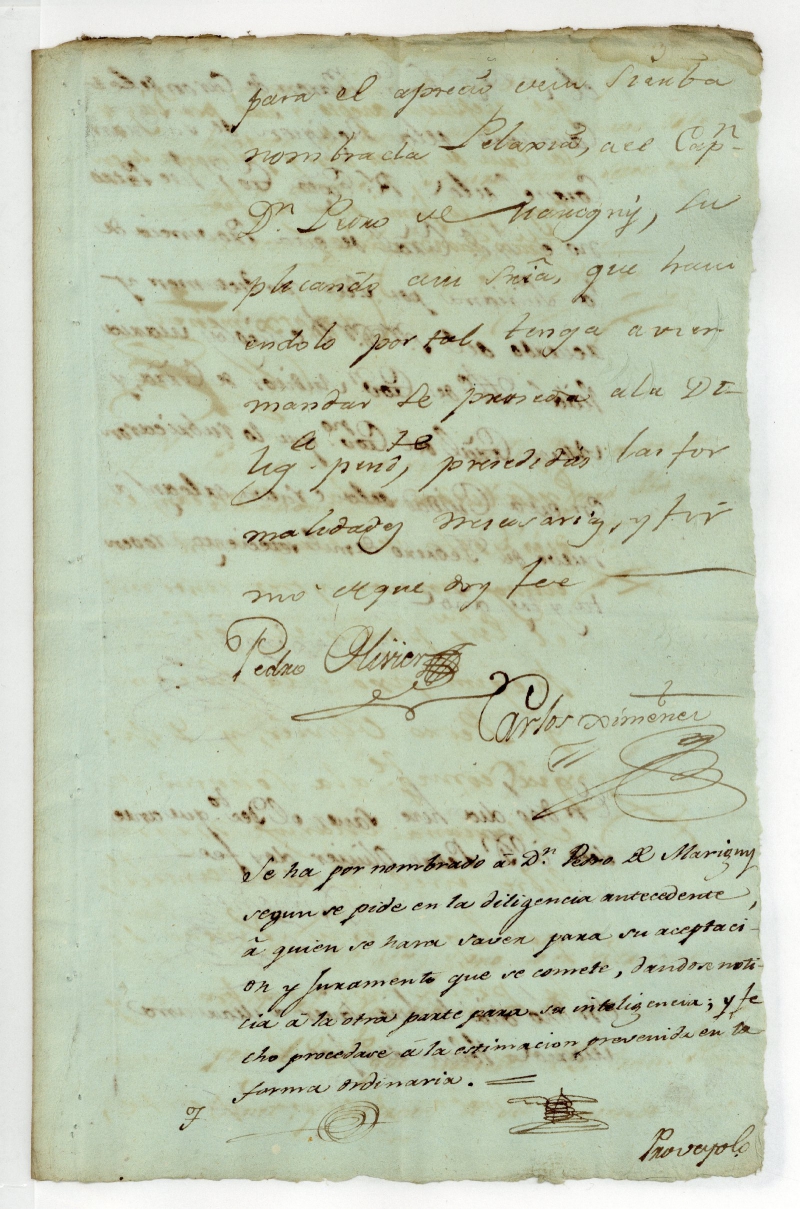 para el aprecio de su sierba
nombrada Pelaxia, a el Capn
Dn Pedro de Marigny, Su
plicando a su sria, que havi
endolo por tal tenga a vien
mandar se proseda a la Di-
liga pendte, presedidas las for
malidades necesarias, y fir
mó de que doy fee
Pedro Olivier
Carlos Ximenez
Se ha por nombrado à Dn Pedro De Marigny
segun se pide en la diligencia antecedente,
à quien se hara saver para su aceptaci-
on y Juramento que se comete, dandose noti-
cia à la otra parte para su inteligencia; y fe
cho procedase à la estimacion prevenida en la
forma ordinaria.